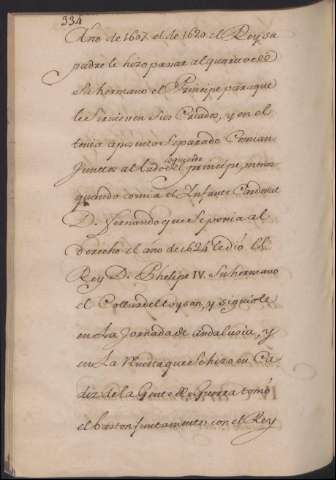 334
Año de 1607. el de 1620. el Rey su
padre le hizo pasar al quarto de
Su hermano el Principe para que
le Sirviesen Sus Criados, y en el
tenia aposento Separado Comian
Juntos al lado izquierdo del principe, menos
quando comia el Infante Cardenal
D. Fernando que Se ponia al
derecho el año de 1624 le dió el
Rey D. Phelipe IV. Su hermano
el Collar del toyson, y siguiole
en la Jornada de andalusia, y
en la Muestra que Se hizo en Ca-
diz de la Gente de Guerra tomó
el baston juntamente con el Rey